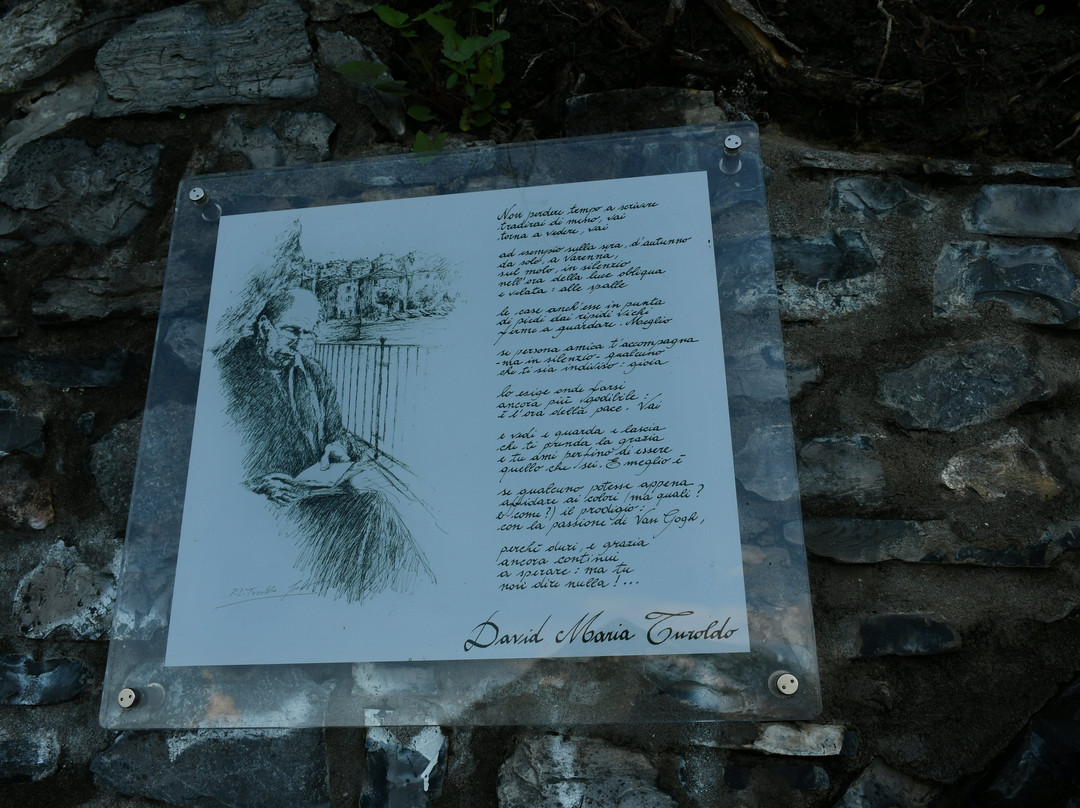 Non perdere tempo a scrivere
tradirai di meno, vai
torna a vedere, vai
ad esempio sulla sera, d'autunno
da solo, a Varenna,
sul molo, in silenzio
nell'ora della luce obliqua
e velata: alle spalle
le case anch'esse in punta
di piedi dai ripidi vichi
ferme a guardare. Meglio
se persona amica t'accompagna
-ma in silenzio- qualcuno
che ti sia indiviso: gioia
lo esige onde farsi
ancora più godibile:
è l'ora della pace. Vai
e vedi e guarda e lascia
che ti prenda la grazia
e tu ami perfino di essere
quello che sei. E meglio è
se qualcuno potesse appena
affidare ai colori (ma quali?
e come?) il prodigio:
con la passione di Van Gogh,
perché duri, e grazia
ancora continui
a sperare: ma tu
non dire nulla!...
David Maria Turoldo